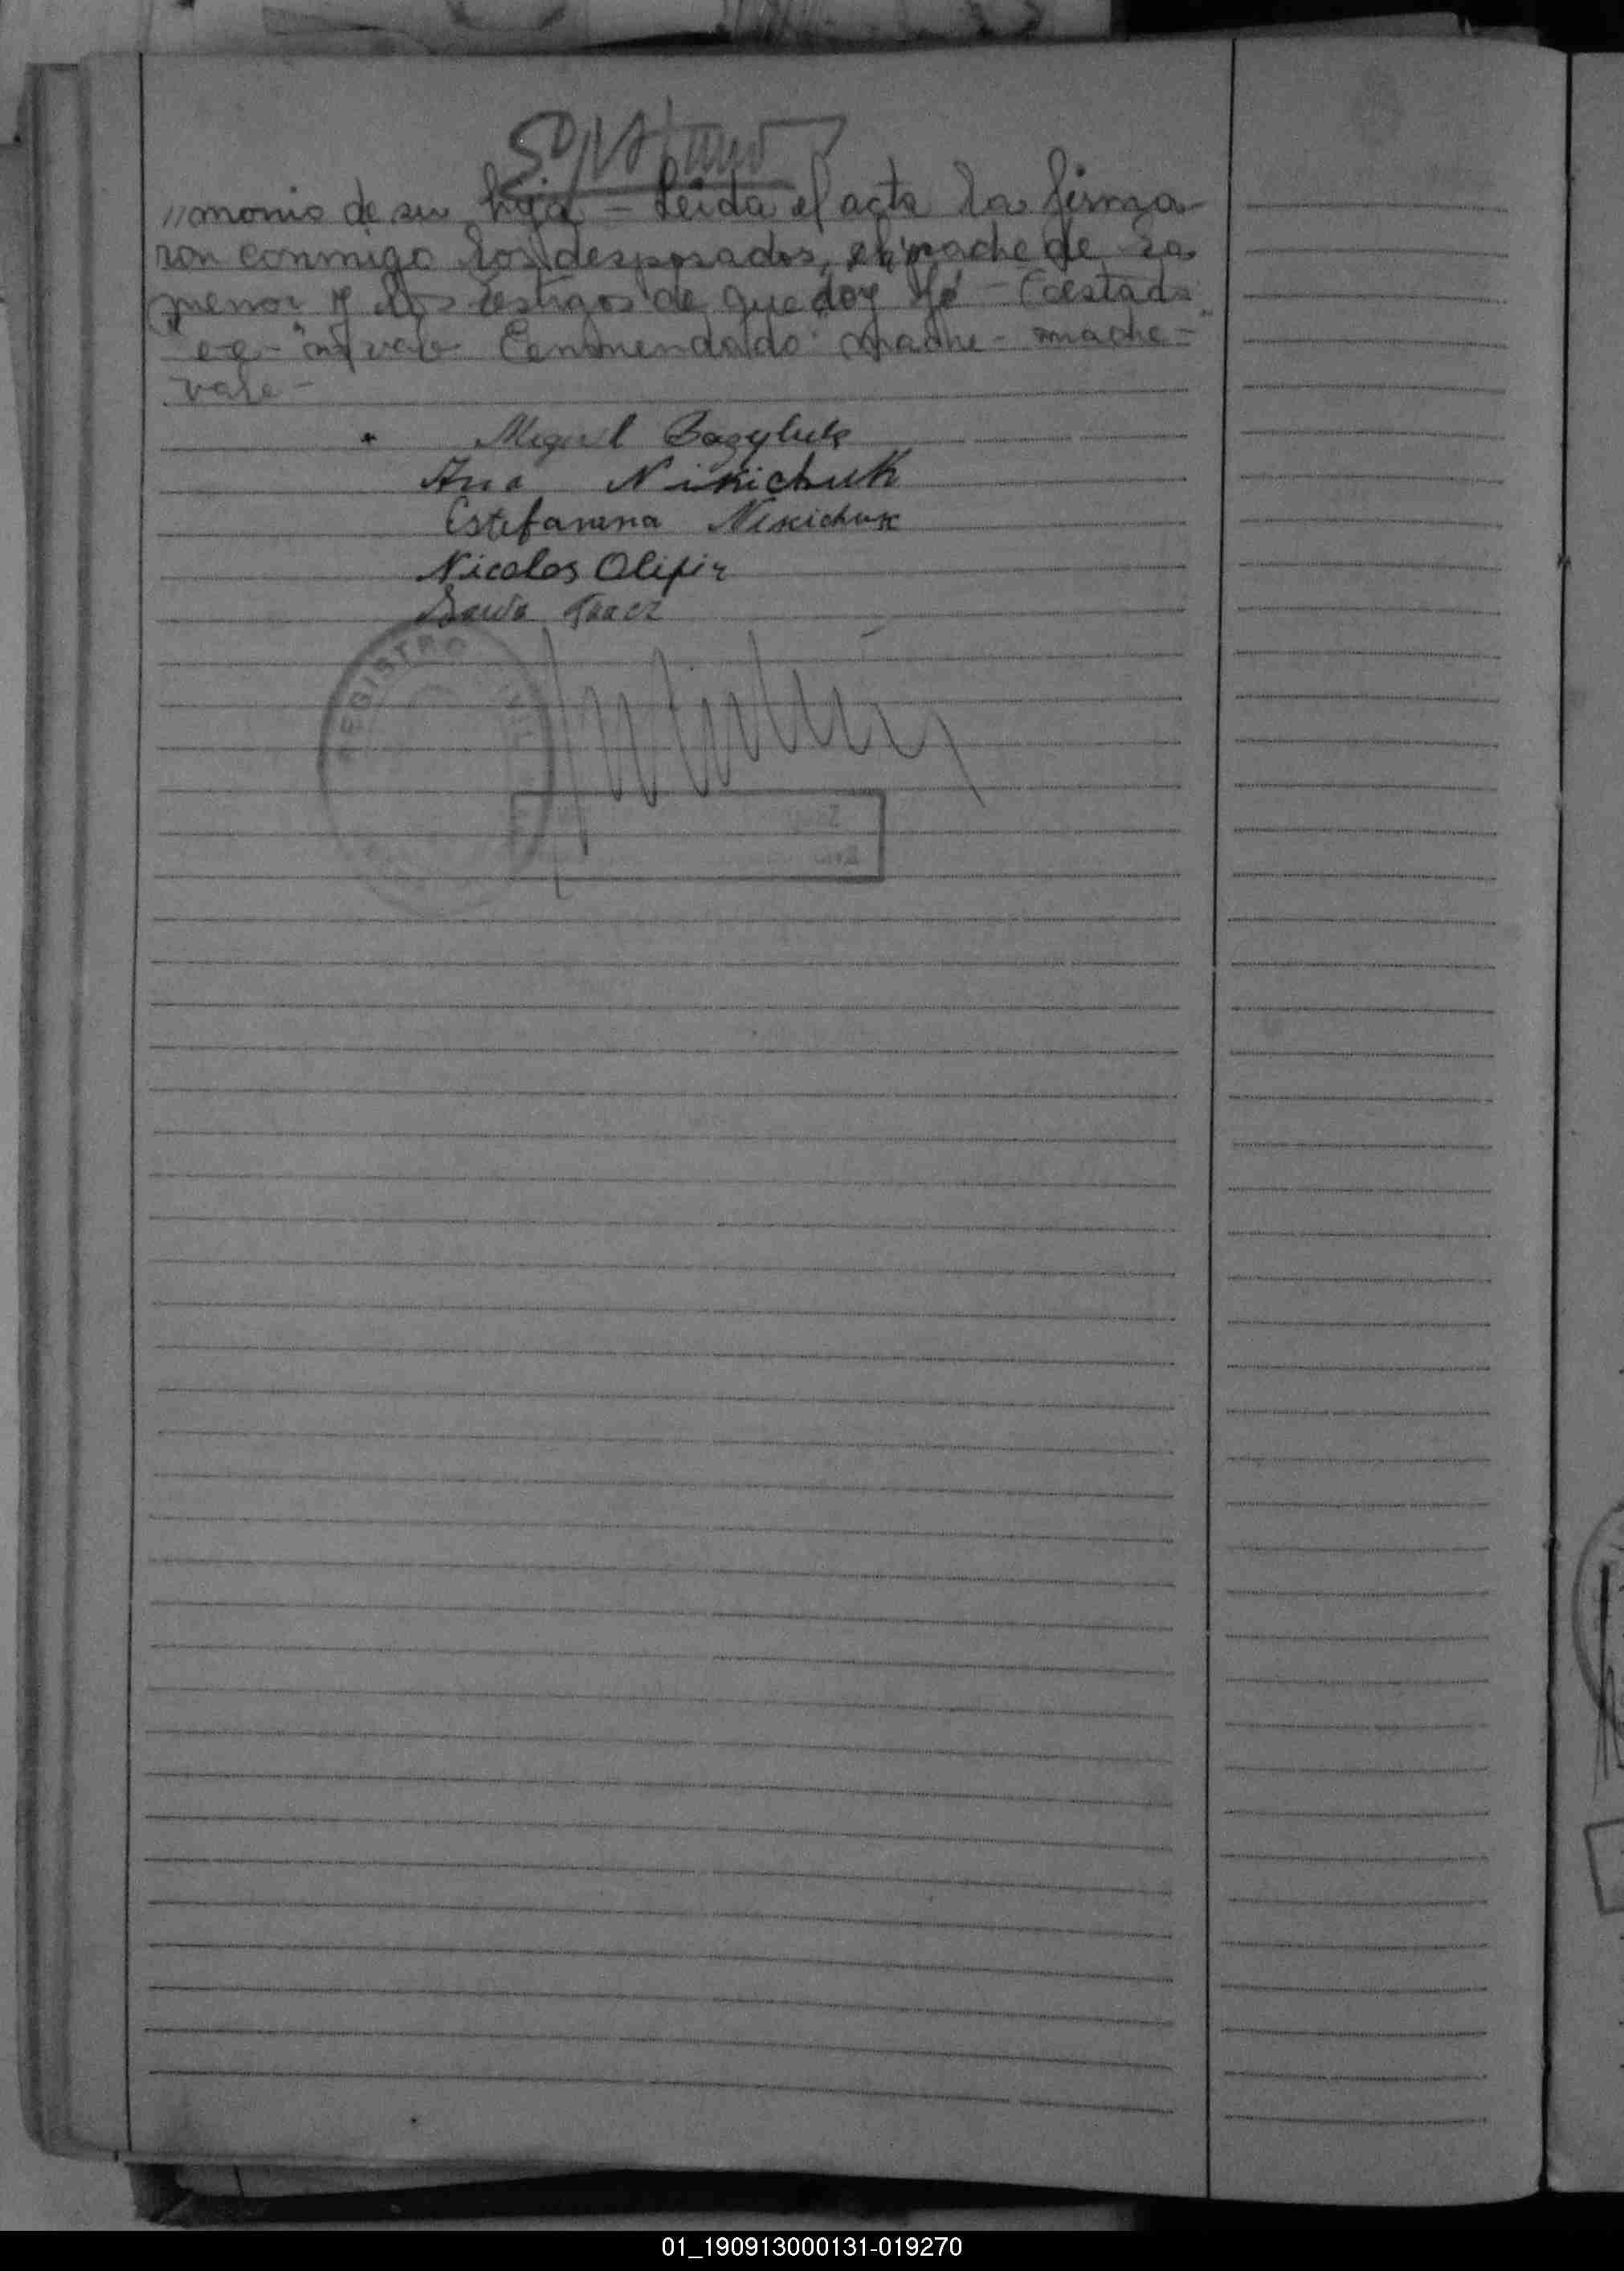 "monio de su hija - Leida el acta la firma
ron conmigo los desposados, el madre de la
menor y los testigos de que doy fé - Testado
"e-e-" no vale Enmendado: madre - madre -"
vale -
Miguel Bazyluk
Ana Nikichuk
Estefanina Nikichuk
Nicolas Olifir
REGISTRO CIVIL
01_190913000131-019270